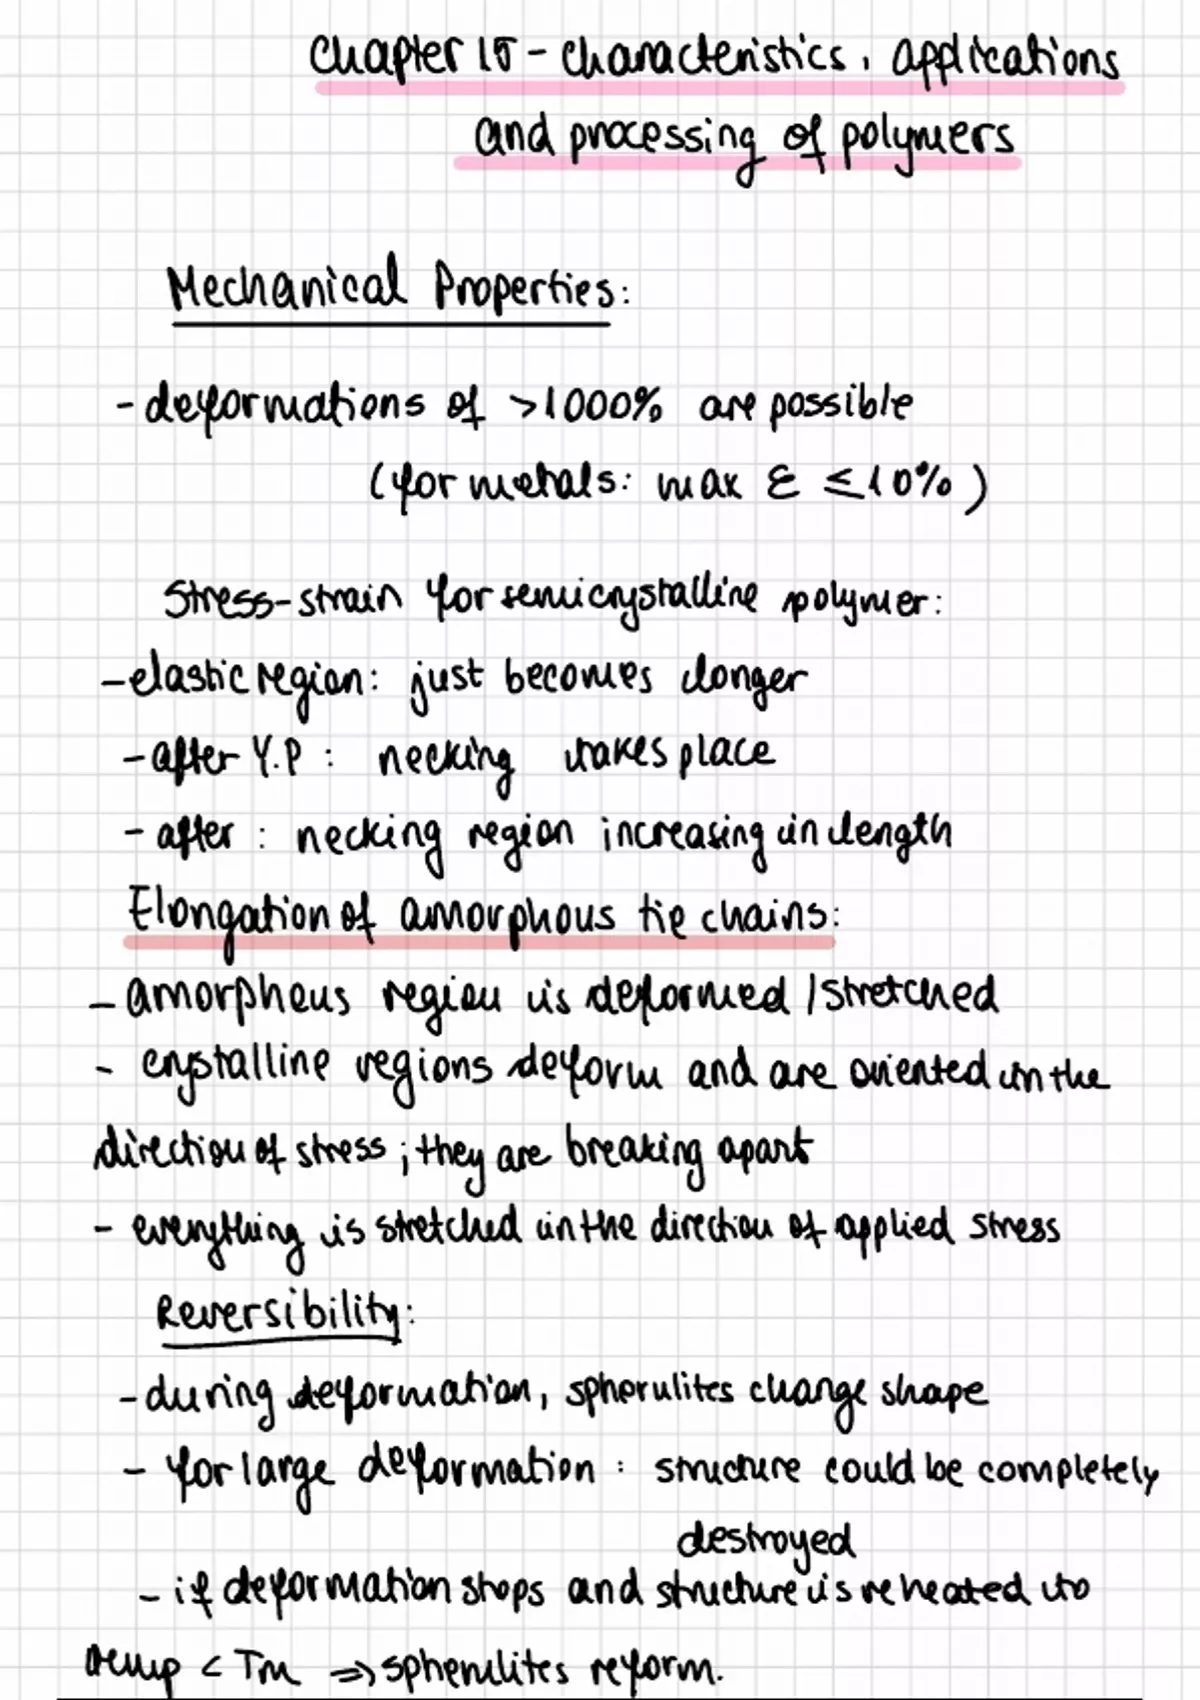 Chapter 15 - Characteristics, applications
and processing of polymers
Mechanical Properties:
- deformations of >1000% are possible
(for metals: max ε ≤10%)
Stress-strain for semicrystalline polymer:
- elastic region: just becomes longer
- after Y.P : necking takes place
- after : necking region increasing in length
Elongation of amorphous tie chains:
- amorphous region is deformed / stretched
- crystalline regions deform and are oriented in the
direction of stress ; they are breaking apart
- everything is stretched in the direction of applied stress
Reversibility:
- during deformation, spherulites change shape
- for large deformation : structure could be completely
destroyed
- if deformation stops and structure is reheated to
temp < Tm ⇒ spherulites reform.